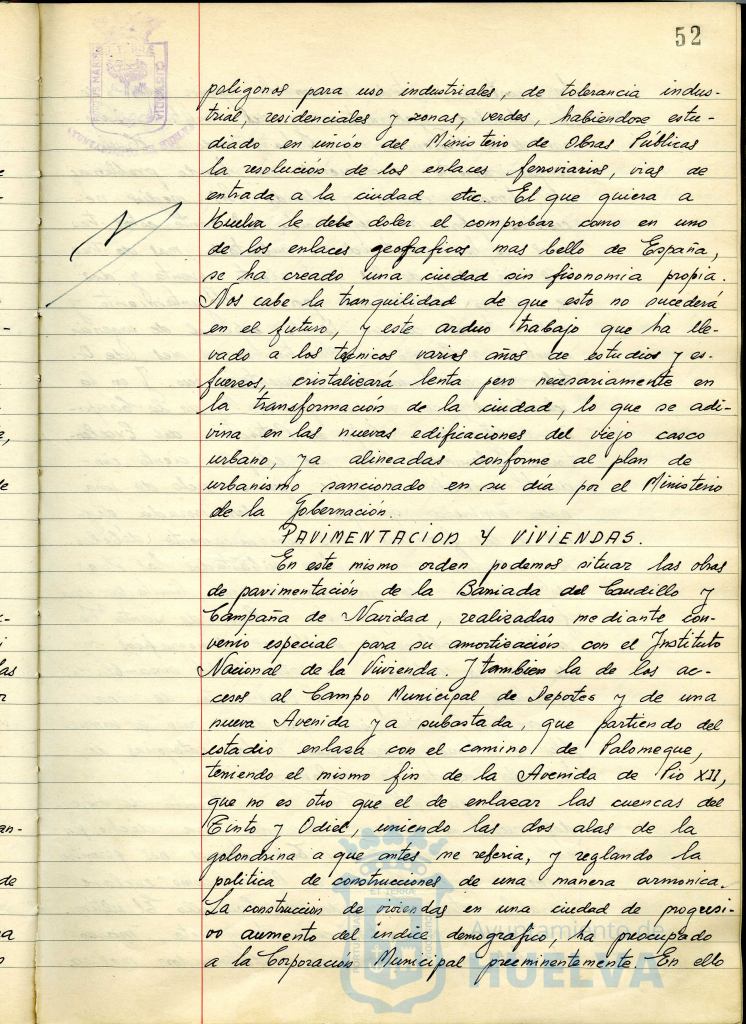 52
poligonos para uso industriales, de tolerancia indus-
trial, residenciales y zonas, verdes, habiendose estu-
diado en unión del Ministerio de Obras Públicas
la resolución de los enlaces ferroviarios, vias de
entrada a la ciudad etc. El que quiera a
Huelva le debe doler el comprobar como en uno
de los enlaces geograficos mas bello de España,
se ha creado una ciudad sin fisonomia propia.
Nos cabe la tranquilidad de que esto no sucederá
en el futuro, y este arduo trabajo que ha lle-
vado a los tecnicos varios años de estudios y es-
fuerzos, cristalizará lenta pero necesariamente en
la transformación de la ciudad, lo que se adi-
vina en las nuevas edificaciones del viejo casco
urbano, ya alineadas conforme al plan de
urbanismo sancionado en su dia por el Ministerio
de la Gobernación.
PAVIMENTACION Y VIVIENDAS.
En este mismo orden podemos situar las obras
de pavimentación de la Barriada del Caudillo y
Campaña de Navidad, realizadas mediante con-
venio especial para su amortización con el Instituto
Nacional de la Vivienda. Y tambien la de los ac-
cesos al Campo Municipal de Deportes y de una
nueva Avenida ya subastada, que partiendo del
estadio enlaza con el camino de Palomeque,
teniendo el mismo fin de la Avenida de Pio XII,
que no es otro que el de enlazar las cuencas del
Tinto y Odiel, uniendo las dos alas de la
golondrina a que antes me referia, y reglando la
politica de construcciones de una manera armonica.
La construccion de viviendas en una ciudad de progresi-
vo aumento del indice demografico, ha preocupado
a la Corporacion Municipal preeminentemente. En ello
Ayuntamiento de
HUELVA